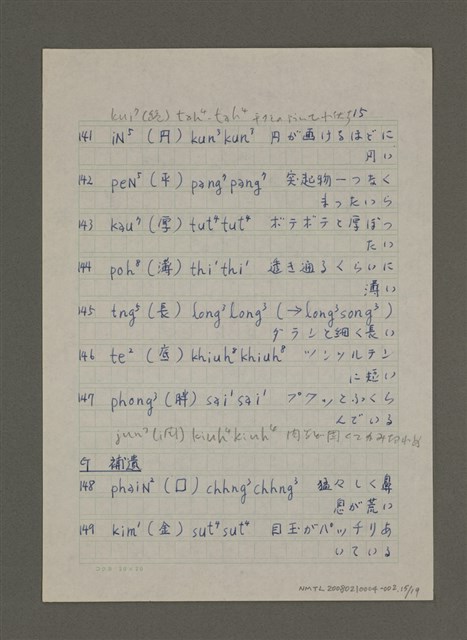 kui⁷ (跪) tah⁴ tah⁴ 15
141 iN⁵ (円) kun³kun³ 円が画けるほどに
円い
142 peN⁵ (平) pang⁷pang⁷ 突起物一つなく
まったいら
143 kau⁷ (厚) tut⁴tut⁴ ボテボテと厚ぼっ
たい
144 poh⁸ (薄) thi¹thi¹ 透き通るくらいに
薄い
145 tng⁵ (長) long³long³ (→long³song³)
ダランと細く長い
146 te² (底) khiuh⁸khiuh⁸ ツンツルテン
に短い
147 phong³ (胖) sai¹sai¹ プクッとふくら
んでいる
kiuh⁴kiuh⁴
補遺
148 phaiN² (□) chhng³chhng³ 猛々しく鼻
息が荒い
149 kim¹ (金) sut⁴sut⁴ 目玉がパッチリあ
いている
20×10×20
NMTL20080210004-002.15/19